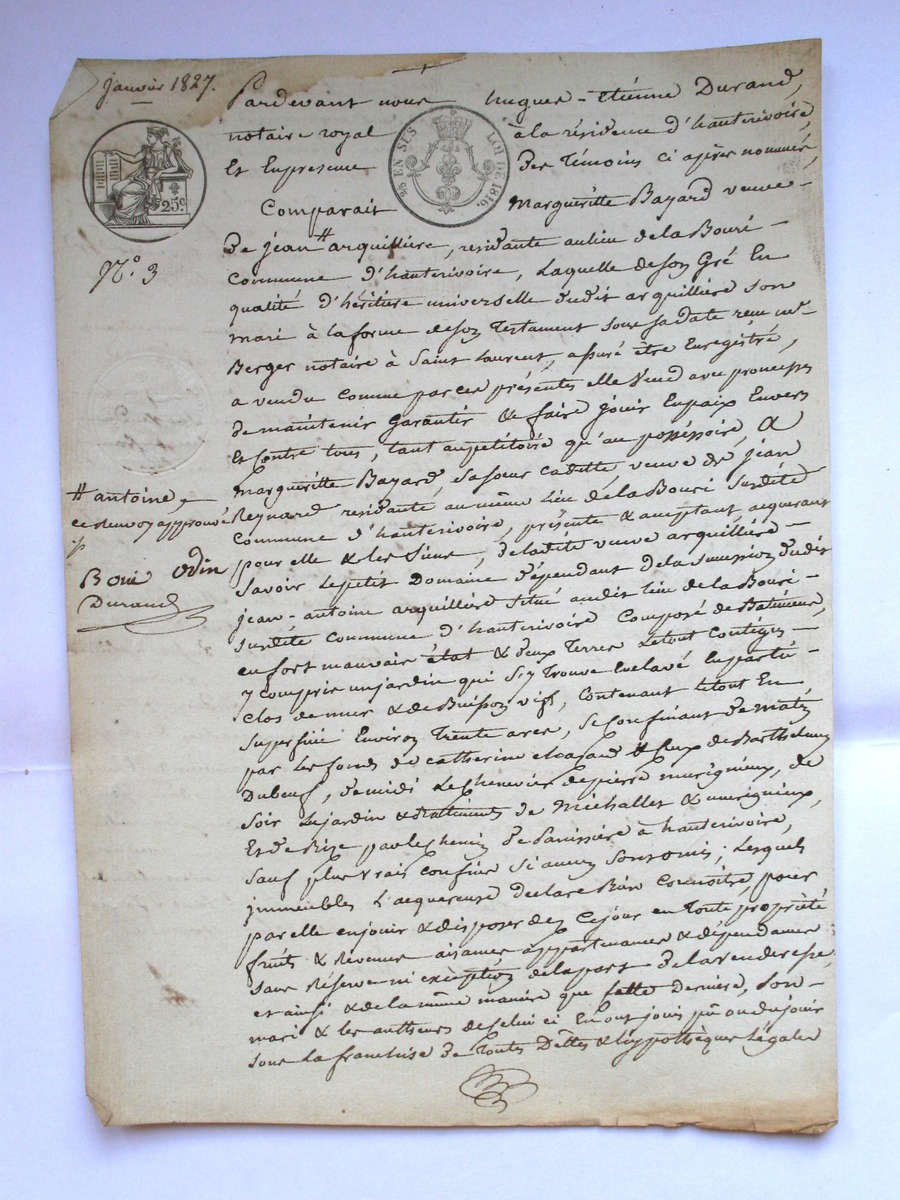 janvier 1827.
Pardevant nous hugues-Etienne Durand,
notaire royal à la résidence d'hauterivoire,
Et Enpresence Des Témoins ci après nommés,
Comparait Margueritte Bayard veuve
25 c
EN SUS LOI DE 1816.
N.° 3
De jean # arquillière, residante aulieu delaBouri
Commune d'hauterivoire, Laquelle deson Gré En
qualité d'héritière universelle dudit arquillière son
mari à la forme deson Testament sous sa date reçu me
Berger notaire à Saint Laurent, assuré être Enregistré,
a vendu comme parces présentes elle Vend avec promesses
de maintenir Garantir & faire jouir Enpaix Envers
Et Contre tous, tant aupetitoire qu'au posséssoire, A
Margueritte Bayard, Sasoeur cadette veuve de jean
Reynard residante au même lieu delaBouri Susdite
Commune d'hauterivoire, présente & acceptant, acquerant
pour elle & les Siens, deladite veuve arquillière
# antoine,
ce renvoy approuvé
Boni Odin
Durand
Savoir Lepetit Domaine Dépendant dela Succession dudit
jean-antoine arquillière Situé audit lieu de laBouri
Susdite commune d'hauterivoire Composé de Batimens
en fort mauvais état & deux Terres Letout Contigus
y compris unjardin qui S'y Trouve Enclavé Enpartie
clos de mur & de Buisson vifs, Contenant letout En
Superficie Environ Trente ares, Se Confinant De matin
par Les fonds de catherine & ceux de Barthelemy
Duboeuf, De midi Lechenevier de pierre murigneux, de
Soir Lejardin & Batiments De Michallet & murigneux,
Et de Bize par lechemin De à hauterivoire,
Sauf plus vrais confins Si aucun Sont omis; Lesquels
jmmeubles L'acquereuse declare Bien Connoitre, pour
par elle enjouir & disposer dez Cejour en Toute propriété
fruits & Revenus aisances appartenances & dépendances
sans Réserve ni exception delapart De la venderesse,
et ainsi & dela même manière que cette Dernière, Son
mari & les autheurs de Celui ci En ont joui pû ou du jouir
sous La franchise de Toutes Dettes & hypothèques Légales